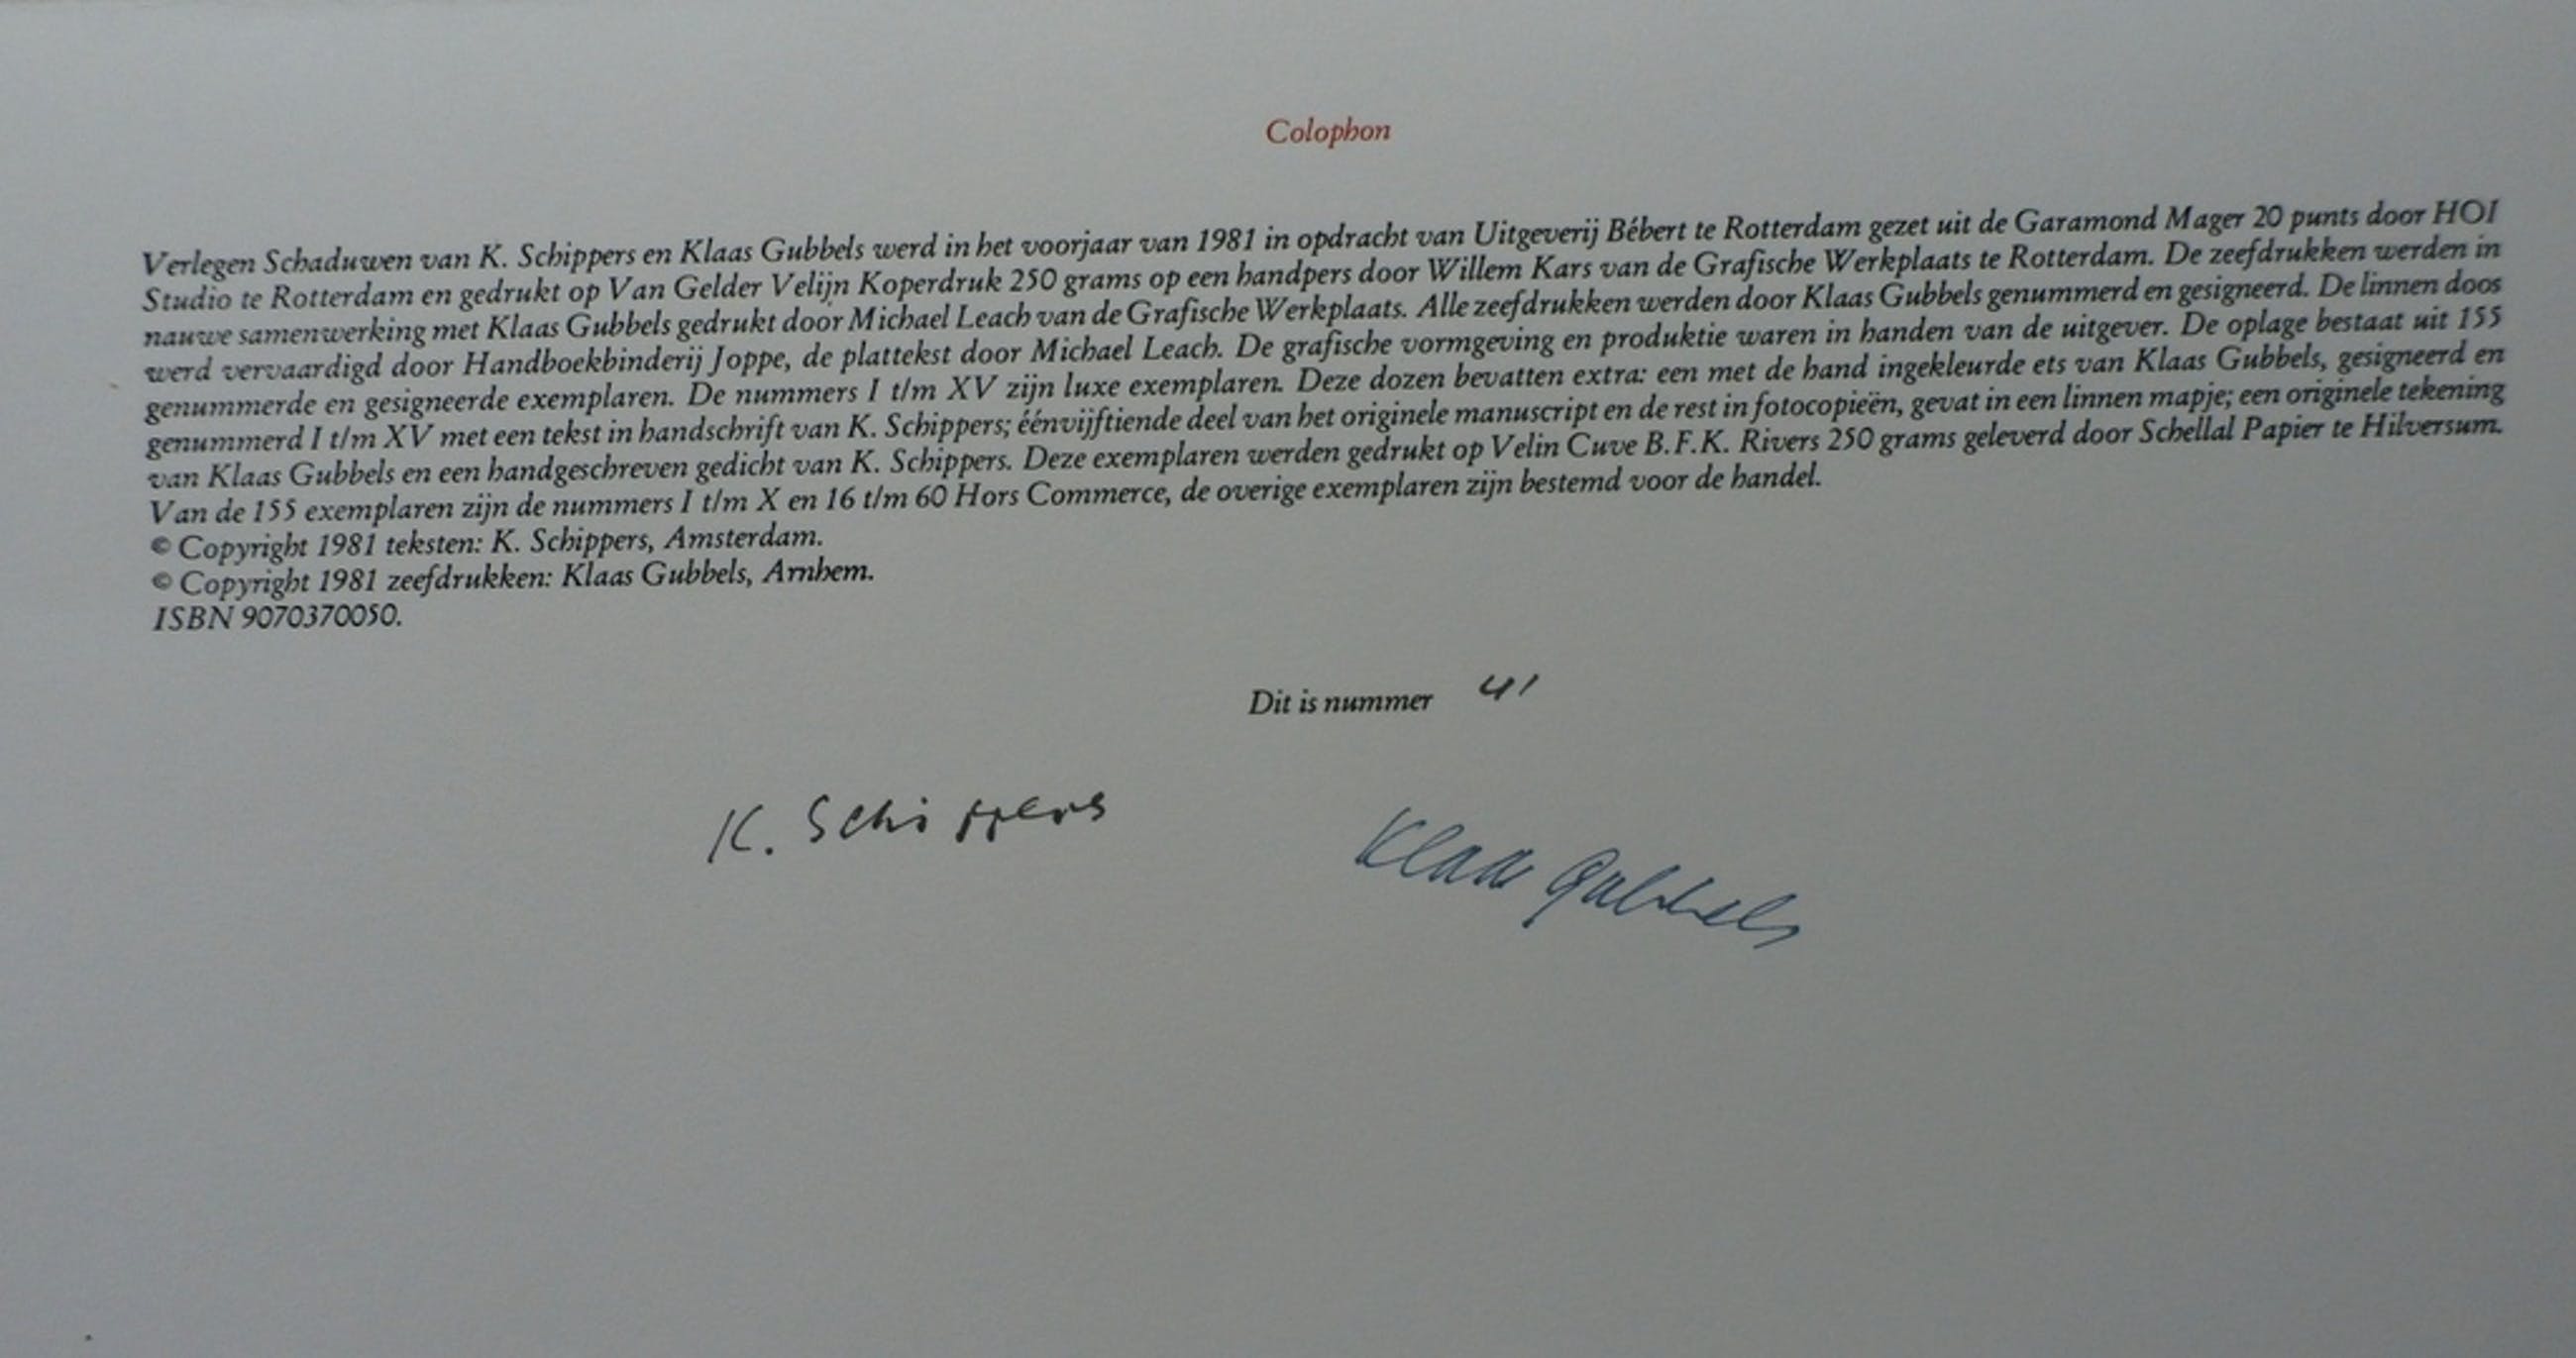 Colophon
Verlegen Schaduwen van K. Schippers en Klaas Gubbels werd in het voorjaar van 1981 in opdracht van Uitgeverij Bébert te Rotterdam gezet uit de Garamond Mager 20 punts door HOI
Studio te Rotterdam en gedrukt op Van Gelder Velijn Koperdruk 250 grams op een handpers door Willem Kars van de Grafische Werkplaats te Rotterdam. De zeefdrukken werden in
nauwe samenwerking met Klaas Gubbels gedrukt door Michael Leach van de Grafische Werkplaats. Alle zeefdrukken werden door Klaas Gubbels genummerd en gesigneerd. De linnen doos
werd vervaardigd door Handboekbinderij Joppe, de plattekst door Michael Leach. De grafische vormgeving en produktie waren in handen van de uitgever. De oplage bestaat uit 155
genummerde en gesigneerde exemplaren. De nummers I t/m XV zijn luxe exemplaren. Deze dozen bevatten extra: een met de hand ingekleurde ets van Klaas Gubbels, gesigneerd en
genummerd I t/m XV met een tekst in handschrift van K. Schippers; éénvijftiende deel van het originele manuscript en de rest in fotocopieën, gevat in een linnen mapje; een originele tekening
van Klaas Gubbels en een handgeschreven gedicht van K. Schippers. Deze exemplaren werden gedrukt op Velin Cuve B.F.K. Rivers 250 grams geleverd door Schellal Papier te Hilversum.
Van de 155 exemplaren zijn de nummers I t/m X en 16 t/m 60 Hors Commerce, de overige exemplaren zijn bestemd voor de handel.
© Copyright 1981 teksten: K. Schippers, Amsterdam.
© Copyright 1981 zeefdrukken: Klaas Gubbels, Arnhem.
ISBN 9070370050.
Dit is nummer 41
K. Schippers
Klaas Gubbels